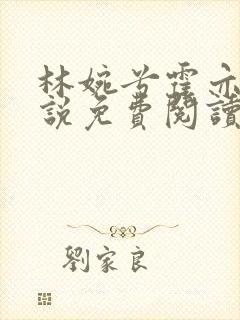 林婉兮霍亦
說免費閱讀
劉家良